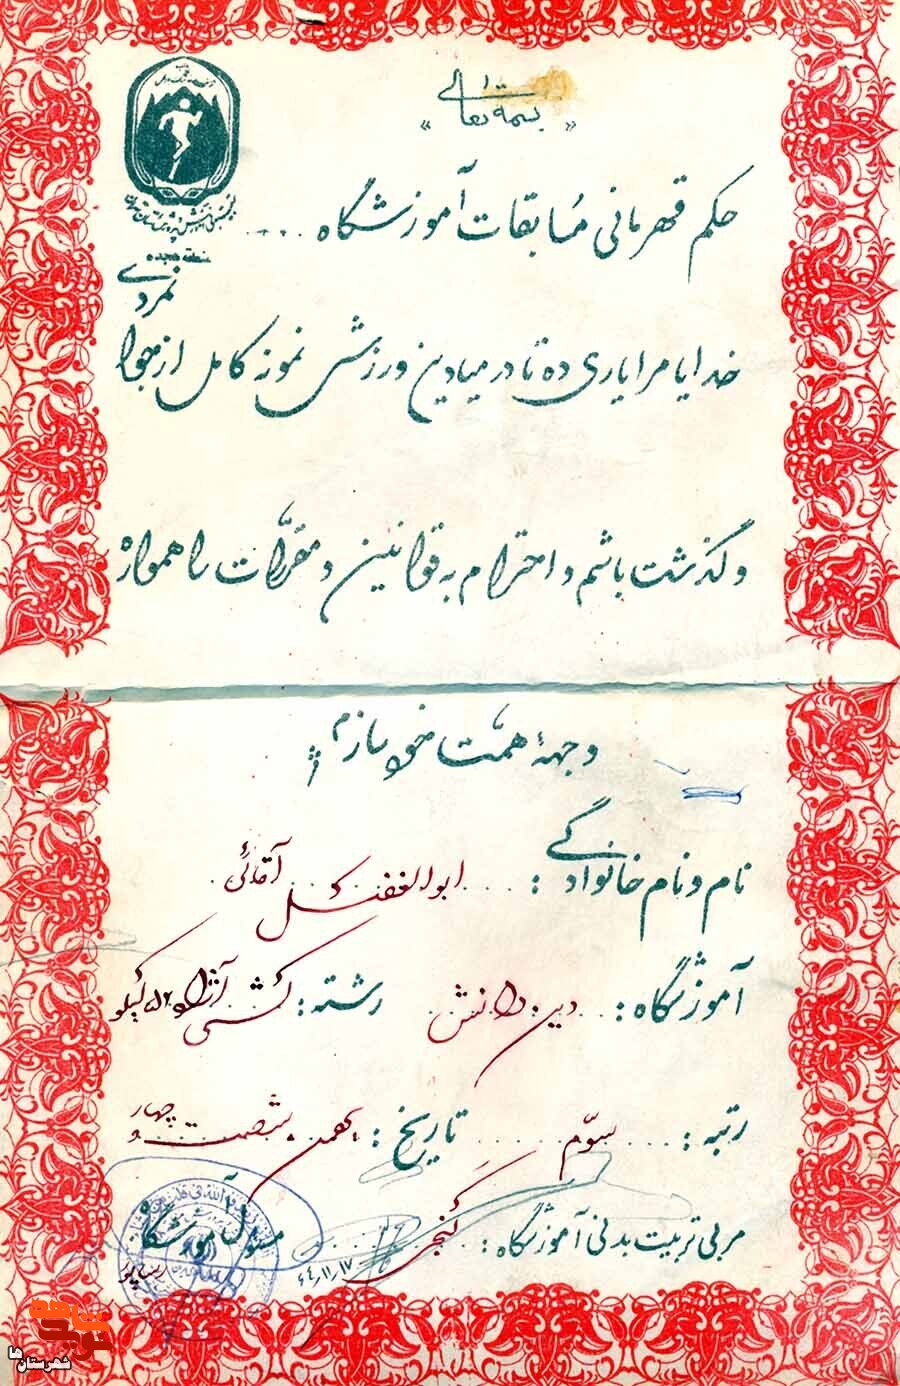 « بسمه تعالی »
حکم قهرمانی مسابقات آموزشگاه ....
منطقه هیجده
خدایا مرا یاری ده تا در میادین ورزشی نمونه کامل از جوانمردی
و گذشت باشم و احترام به قوانین و مقررّات را همواره
وجههٔ همّت خود سازم
نام و نام خانوادگی : ... ابوالفضل آقائی
آموزشگاه : .. دین و دانش .. رشته : کشتی آزاد ۵۲ کیلو
رتبه : .... سوّم ...... تاریخ : بهمن شصت و چهار
مربی تربیت بدنی آموزشگاه : گنجی مسئول آموزشگاه
۶۴,۱۱,۱۷
شهرستان‌ها